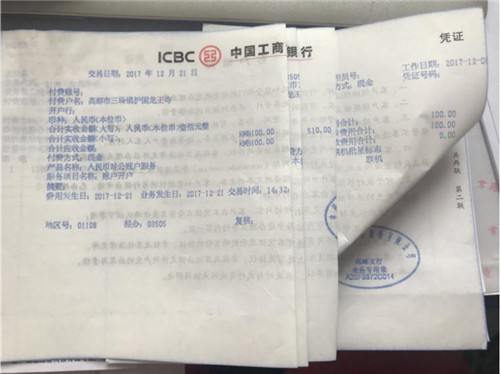 ICBC 中国工商银行
交易日期: 2017 年 12 月 21 日
付费账号:
付费户名: 高邮市三垛镇护国龙王寺
开户行:
币种: 人民币(本位币)
合计实收金额(大写): 人民币(本位币)壹佰元整
合计实收金额(小写): RMB100.00
合计应收金额: RMB100.00
付费方式: 现金
产品名称: 人民币对公账户服务
服务项目名称: 账户开户
摘要:
费用发生日: 2017-12-21 业务发生日: 2017-12-21 交易时间: 14:12:
地区号: 01108 经办: 03505 复核:
凭证
工作日期: 2017-12-0
凭证号码:
03505
方式: 现金
510.00
合计: 100.00
费合计: 100.00
费用合计: 0.00
联机批量标志
联机
第二联
高邮支行
业务专用章